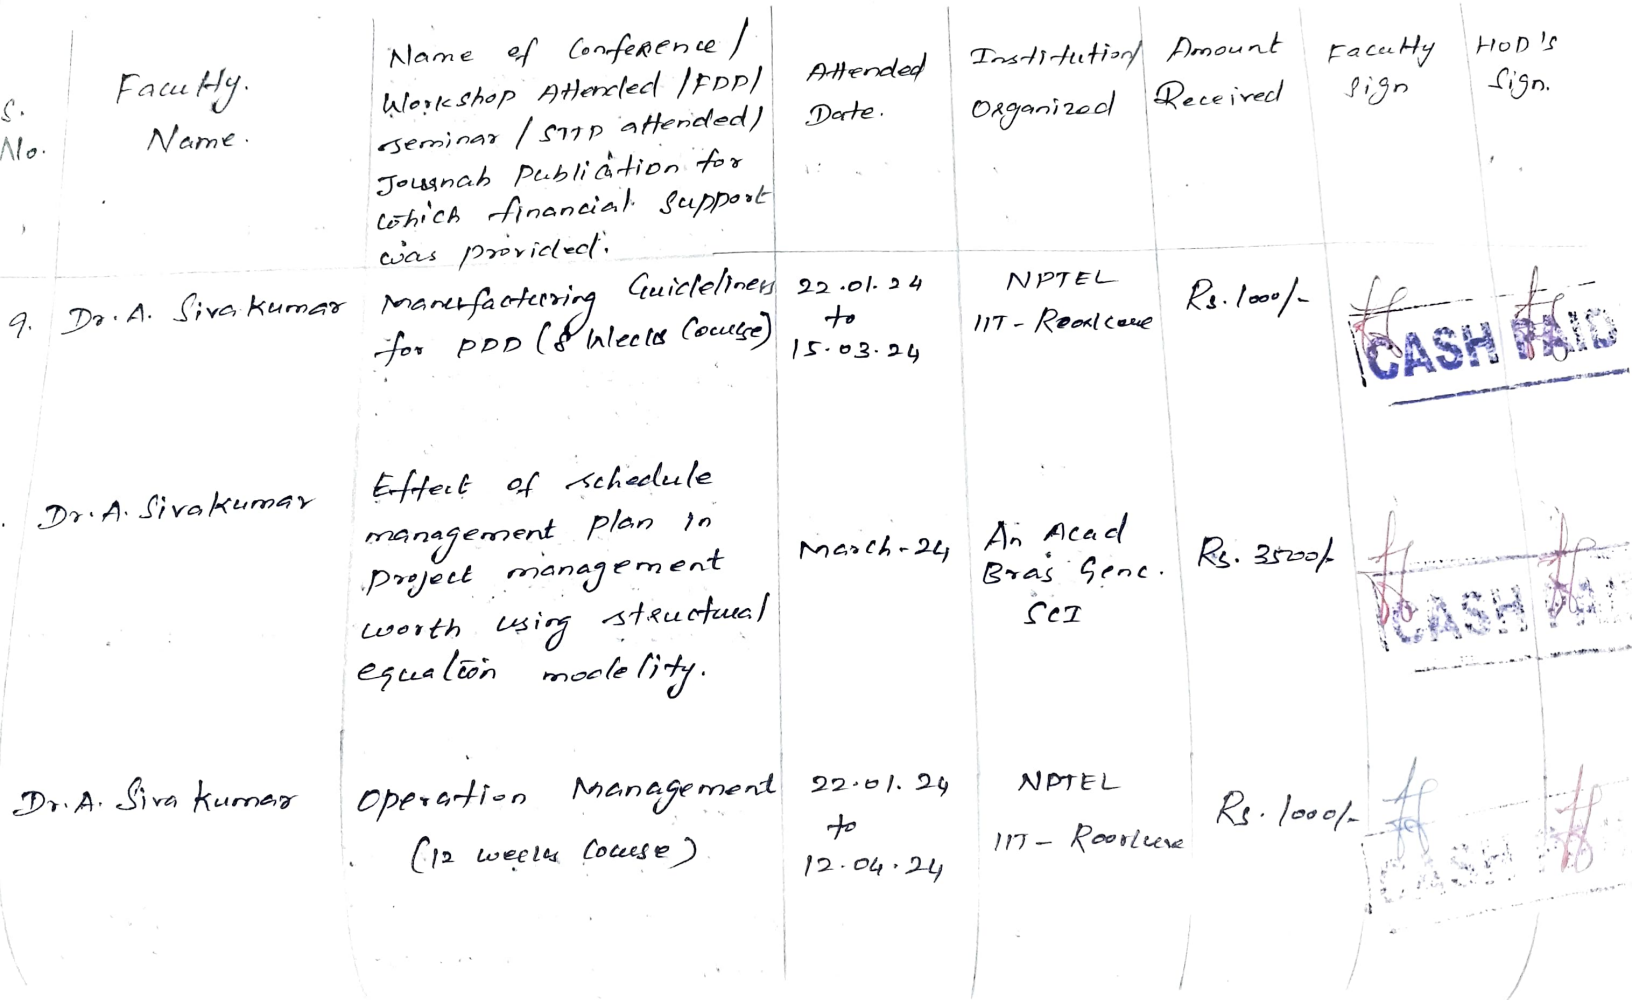 S.
No.
Faculty.
Name.
Name of Conference /
Workshop Attended / FDP /
seminar / STTP attended /
Journals Publication for
which financial support
was provided.
Attended
Date.
Institution /
Organized
Amount
Received
Faculty
sign
HOD's
Sign.
9. Dr. A. Sivakumar
Manufacturing Guidelines
for PDD (8 Weeks Course)
22.01.24
to
15.03.24
NPTEL
IIT - Roorkee
Rs. 1000/-
CASH PAID
Dr. A. Sivakumar
Effect of schedule
management plan in
project management
worth using structural
equation modelity.
March-24
An Acad
Bras Genc.
SCI
Rs. 3500/-
CASH PAI
Dr. A. Sivakumar
Operation Management
(12 weeks Course)
22.01.24
to
12.04.24
NPTEL
IIT - Roorkee
Rs. 1000/-
CASH